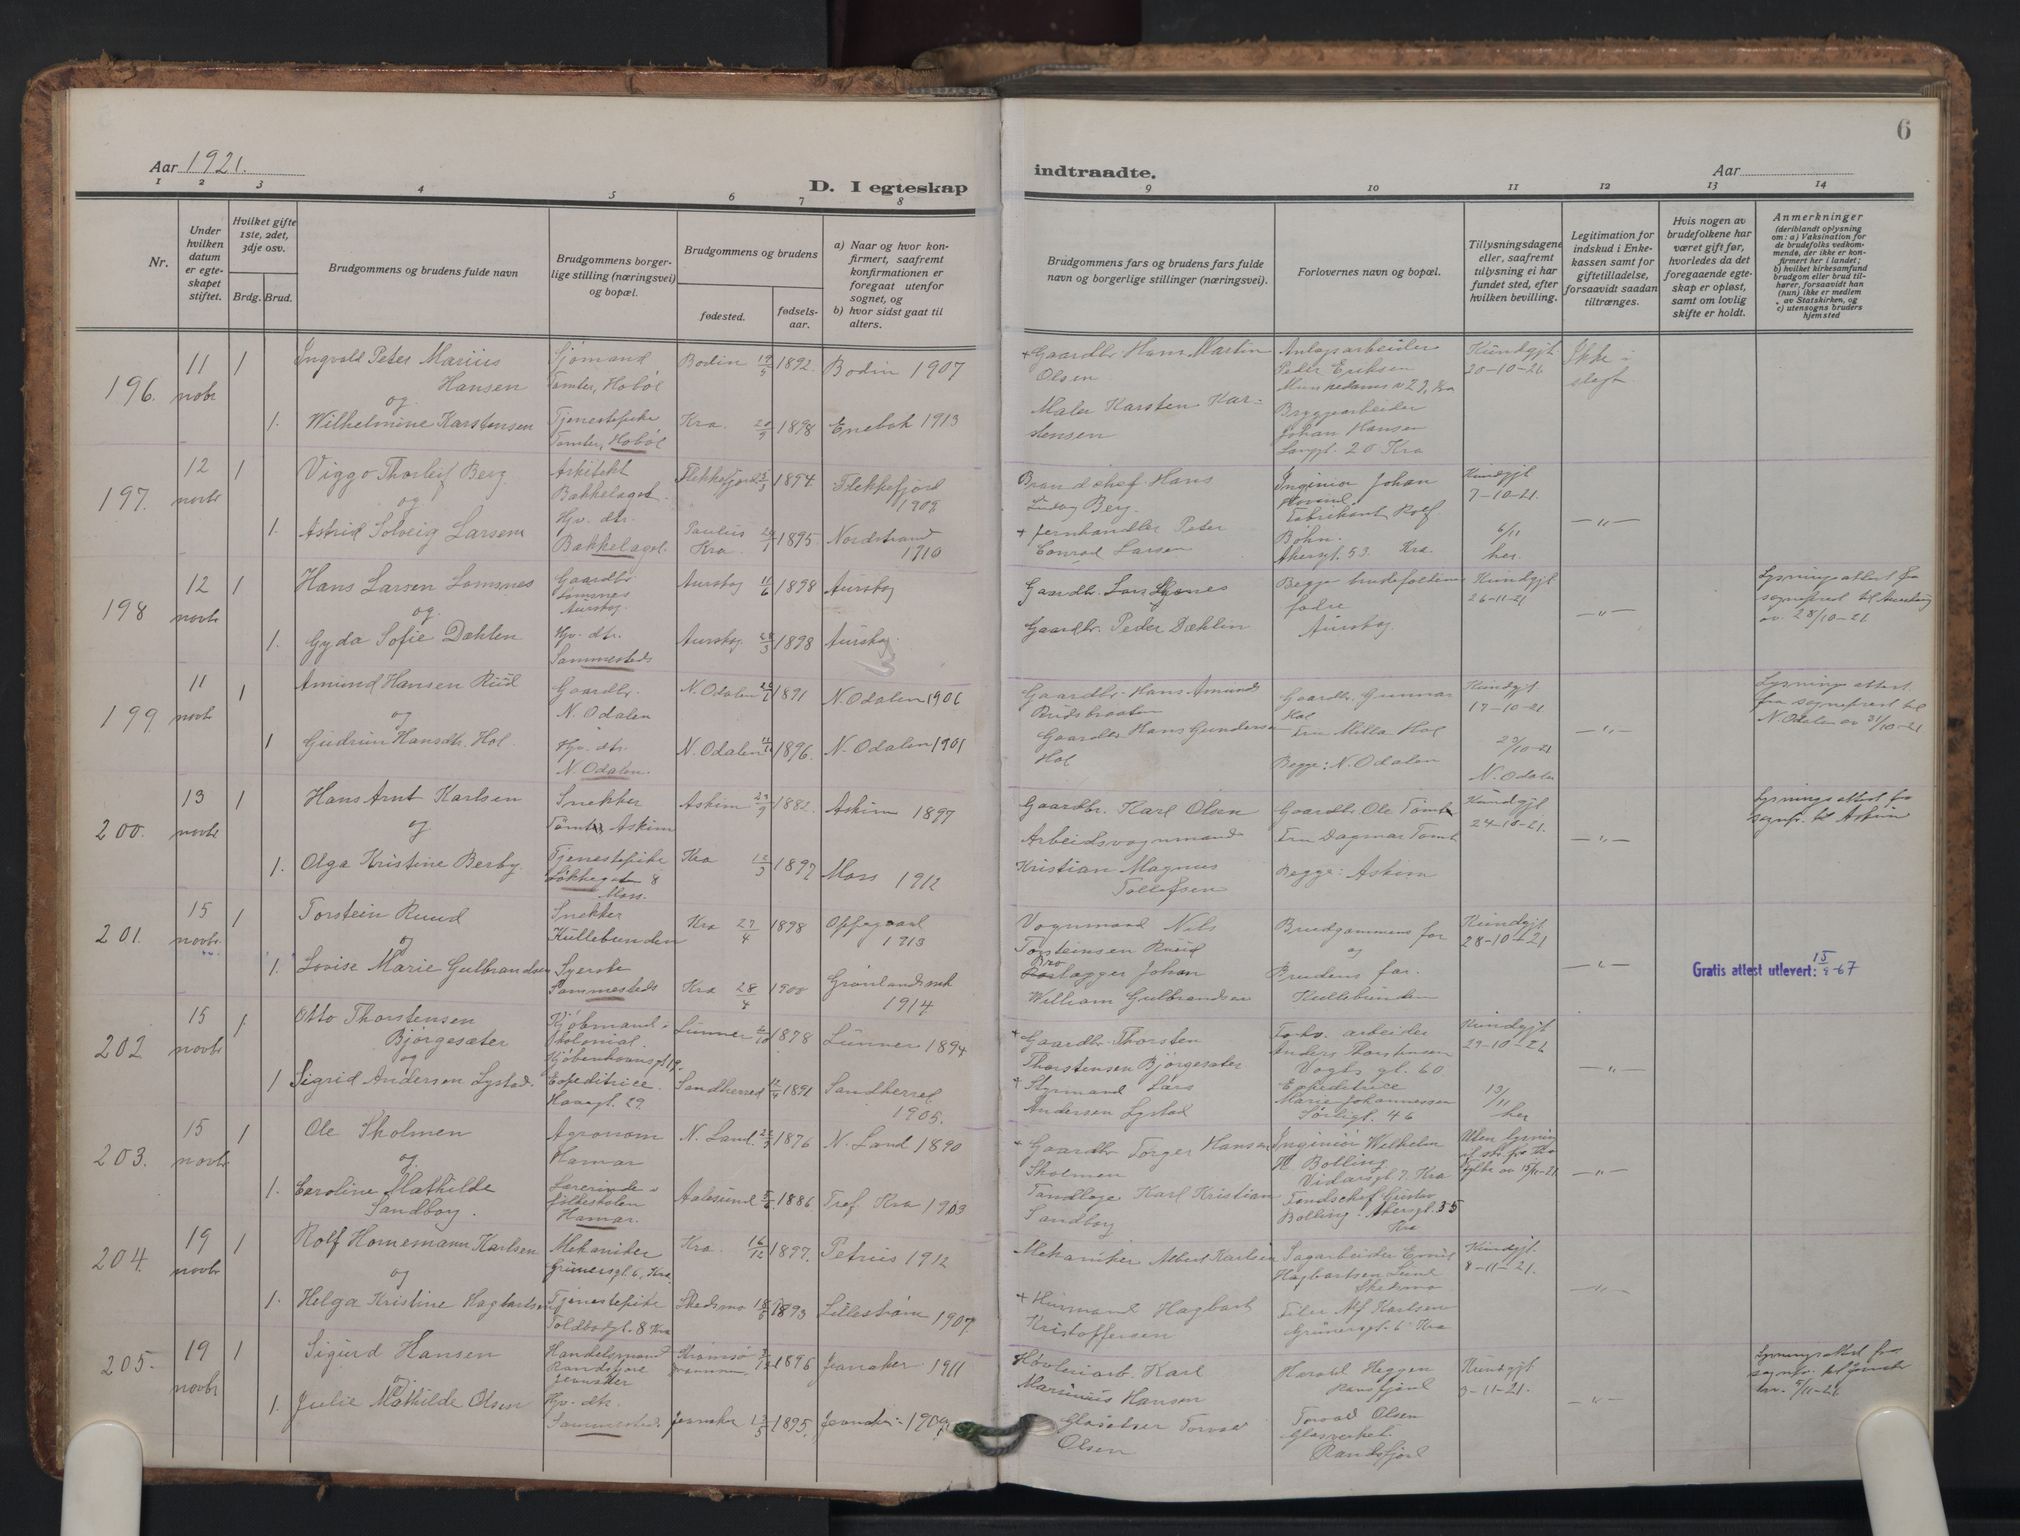 6
Aar 1921.
D. I egteskap
indtraadte.
Aar
1 2 3 4 5 6 7 8 9 10 11 12 13 14
Nr.
Under hvilken datum er egteskapet stiftet.
Hvilket gifte 1ste, 2det, 3dje osv.
Brdg. Brud.
Brudgommens og brudens fulde navn
Brudgommens borgerlige stilling (næringsvei) og bopæl.
Brudgommens og brudens
fødested.
fødselsaar.
a) Naar og hvor konfirmert, saafremt konfirmationen er foregaat utenfor sognet, og
b) hvor sidst gaat til alters.
Brudgommens fars og brudens fars fulde navn og borgerlige stillinger (næringsvei).
Forlovernes navn og bopæl.
Tillysningsdagene eller, saafremt tilysning ei har fundet sted, efter hvilken bevilling.
Legitimation for indskud i Enkekassen samt for giftetilladelse, forsaavidt saadan tiltrænges.
Hvis nogen av brudefolkene har været gift før, hvorledes da det foregaaende egteskap er opløst, samt om lovlig skifte er holdt.
Anmerkninger
(deriblandt oplysning om: a) Vaksination for de brudefolks vedkommende, der ikke er konfirmert her i landet; b) hvilket kirkesamfund brudgom eller brud tilhører, forsaavidt han (hun) ikke er medlem av Statskirken, og c) utensogns bruders hjemsted
196. 11 novbr 1 Ingvald Peter Marius Hansen Sjømand Tomter, Hobøl Bodin 1892. Bodin 1907 + Gaardbr Hans Martin Olsen Anlægsarbeider Peder Eriksen Kundgjt 20-10-21 Ikke i slegt
og
1. Wilhelmine Karstensen Tjenestepike Tomter, Hobøl Kra. 1898 Enebak 1913 Maler Karsten Karstensen Bryggearbeider Johan Hansen Langgt. 20 Kra
197. 12 novbr 1 Viggo Thorleif Berg Arkitekt Bakkelaget. Flekkefjord 1894 Flekkefjord 1908 Brandchef Hans Ludvig Berg. Inginiør Johan Kundgjt 7-10-21.
og
1. Astrid Solveig Larsen Hjv. dtr. Bakkelaget. Paulus Kra. 1895. Nordstrand 1910 + Jernhandler Peter Conrad Larsen Fabrikant Rolf Bøhn. Akersgt. 53. Kra. 6/11 her. —"—
198 12 novbr 1 Hans Larsen Lomsnes Gaardbr. Lomsnes Aurskog. Aurskog 11/6 1898 Aurskog Gaardbr. Lars Begge brudefolkenes fædre Aurskog Kundgjt 26-11-21 —"— Lysningsattest fra sogneprest til Aurskog av. 28/10-21
og
1. Gyda Sofie Dæhlen Hjv. dtr. Sammesteds Aurskog 1898 Aurskog. Gaardbr. Peder Dæhlin
199 11 novbr 1 Amund Hansen Ruud Gaardbr. N. Odalen N. Odalen 1891 N. Odalen 1906 Gaardbr. Hans Amunds Rudsbraaten Gaardbr. Gunnar Hol Kundgjt 17-10-21 Lysningsattest fra sogneprest til N. Odalen av 31/10-21
og
1 Gudrun Hansdtr. Hol. Hjv. dtr. N. Odalen. N. Odalen 1896. N. Odalen 1901 Gaardbr Hans Gundersen Hol Fru Milla Hol Begge: N. Odalen 23/10-21 N. Odalen —"—
200. 13 novbr 1 Hans Arnt Karlsen Snekker Askim Askim 1882. Askim 1897 Gaardbr. Karl Olsen Gaardbr. Ole Tomt Kundgjt 24-10-21. Lysningsattest fra sognepr. til Askim
og
1. Olga Kristine Berby. Tjenestepike Løkkegaten 8 Moss. Kra 1897 Moss 1912 Arbeidsvognmand Kristian Magnus Tollefsen Fru Dagmar Tomt Begge: Askim —"—
201. 15 novbr. 1 Torstein Ruud Snekker Kullebunden Kra 27/4 1898 Oppegaard 1913 Vognmand Nils Torsteinsen Ruud Brudgommens far Kundgjt 28-10-21
og
1. Lovise Marie Gulbrandsen Syerske Sammesteds Kra 28/4 1900 Grønland 1914 Brolægger Johan William Gulbrandsen og Brudens far. Kullebunden —"— Gratis attest utlevert: 15/9-67
202 15 novbr 1. Otto Thorstensen Bjørgesæter Kjøbmand i kolonial. Kjøbenhavnsgt 19. Lunner 1878 Lunner 1894 + Gaardbr. Thorsten Thorstensen Bjørgesæter arbeider Anders Thorstensen Vogts gt. 60. Kundgjt 29-10-21
og
1 Sigrid Andersen Lystad. Expeditrice. 29 Sandherred 1891 Sandherred 1905. + Styrmand Lars Andersen Lystad Expeditrice Marie Johannessen Sørligt. 46 13/11 her —"—
203. 15 novbr 1 Ole Skolmen Agronom Hamar N. Land. 1876 N. Land 1890 + Gaardbr Torger Hansen Skolmen Inginiør Wilhelm Bolling Vidarsgt. 7. Kra Uten lysning
og
1. Caroline Mathilde Sandborg. Lærerinde i folkeskolen Hamar. Aalesund 1886 Tref. Kra 1903 Tandlæge Karl Kristian Sandborg Gustav Bolling. Akersgt. 55 Kra —"—
204. 19 novbr 1 Rolf Hornemann Karlsen Mekaniker Grünersgt. 6, Kra. Kra. 16/12 1897. Petrus 1912 Mekaniker Albert Karlsen Sagarbeider Emil Hagbartsen Lund Skedsmo Kundgjt. 8-11-21.
og
1. Helga Kristine Hagbartsen Tjenestepike Toldbodgt. 8 Kra Skedsmo 1893 Lillestrøm 1907. + Husmand Hagbart Kristoffersen Filer Alf Karlsen Grünersgt. 6 Kra —"—
205. 19 novbr 1 Sigurd Hansen Handelsmand Randsfjord Jevnaker 1896 Jevnaker 1911 Høvleriarb. Karl Marinius Hansen Harald Heggen Randsfjord Kundgjt. 3-11-21. Lysningsattest fra sognepr. til Jevnaker av. 5/11-21
og
1. Julie Mathilde Olsen Hjv. dtr. Sammesteds. Jevnaker 1895. Jevnaker Glassliper Torvald Olsen Torvald Olsen Glasverket. Randsfjord —"—